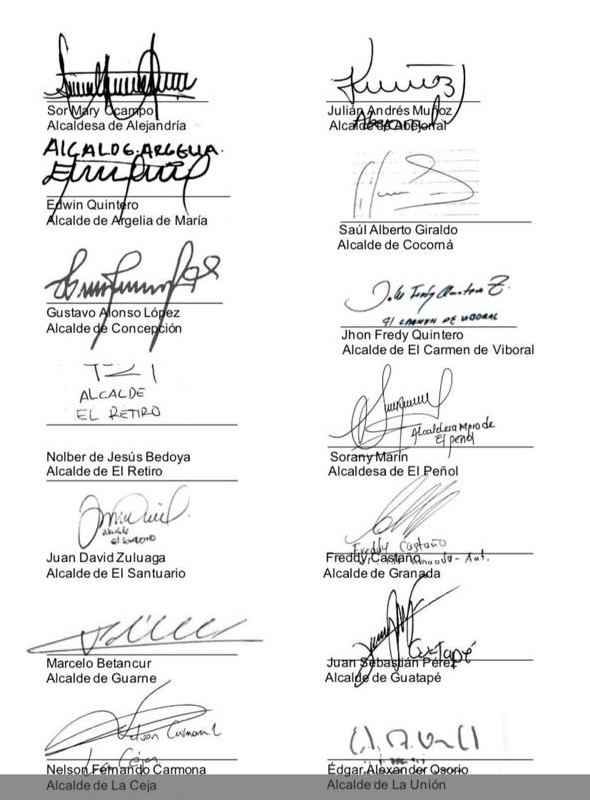 Sor Mary Ocampo
Alcaldesa de Alejandría
Julián Andrés Muñoz
Alcalde de Abejorral
ALCALDE. ARGELIA.
Edwin Quintero
Alcalde de Argelia de María
Saúl Alberto Giraldo
Alcalde de Cocorná
Gustavo Alonso López
Alcalde de Concepción
Jhon Fredy Quintero Z.
El CARMEN DE VIBORAL
Jhon Fredy Quintero
Alcalde de El Carmen de Viboral
ALCALDE
EL RETIRO
Nolber de Jesús Bedoya
Alcalde de El Retiro
El peñol
Sorany Marín
Alcaldesa de El Peñol
alcalde
el santuario
Juan David Zuluaga
Alcalde de El Santuario
Freddy Castaño
Granada - Ant.
Freddy Castaño
Alcalde de Granada
Marcelo Betancur
Alcalde de Guarne
Guatapé
Juan Sebastián Pérez
Alcalde de Guatapé
Nelson Carmona
La Ceja
Nelson Fernando Carmona
Alcalde de La Ceja
Édgar Alexander Osorio
Alcalde de La Unión